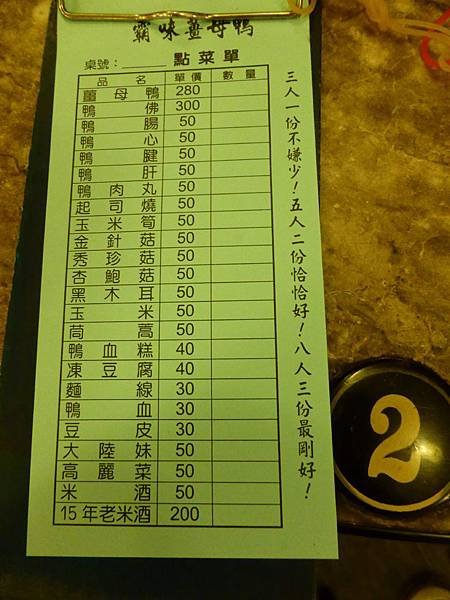 霸味薑母鴨
桌號：______ 點菜單
品名 單價 數量
薑母鴨 280
鴨佛 300
鴨腸 50
鴨心 50
鴨腱 50
鴨肝 50
鴨肉丸 50
起司燒 50
玉米筍 50
金針菇 50
秀珍菇 50
杏鮑菇 50
黑木耳 50
玉米 50
茼蒿 50
鴨血糕 40
凍豆腐 40
麵線 30
鴨血 30
豆皮 30
大陸妹 50
高麗菜 50
米酒 50
15年老米酒 200
三人一份不嫌少！五人二份恰恰好！八人三份最剛好！
2